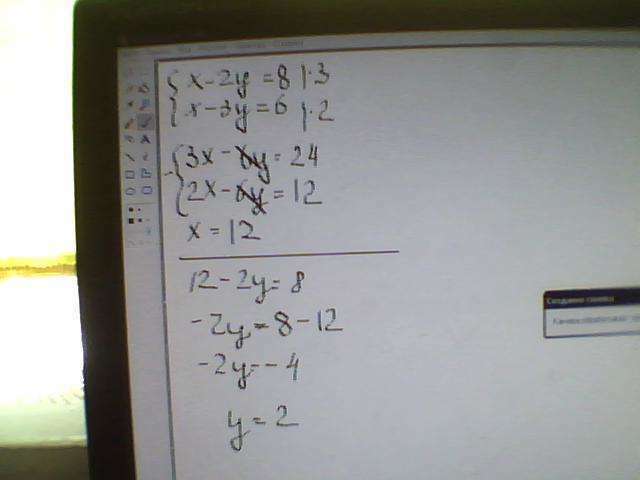 { x - 2y = 8 | · 3
{ x - 3y = 6 | · 2
{ 3x - 6y = 24
{ 2x - 6y = 12
x = 12
12 - 2y = 8
-2y = 8 - 12
-2y = -4
y = 2
Создание